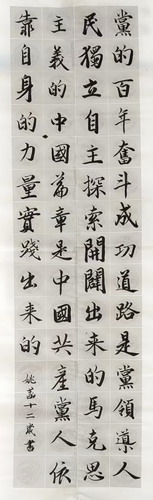 黨的百年奮斗成功道路是黨領導人
民獨立自主探索開闢出來的馬克思
主義的中國篇章是中國共產黨人依
靠自身的力量實踐出來的
姚菡十二歲書